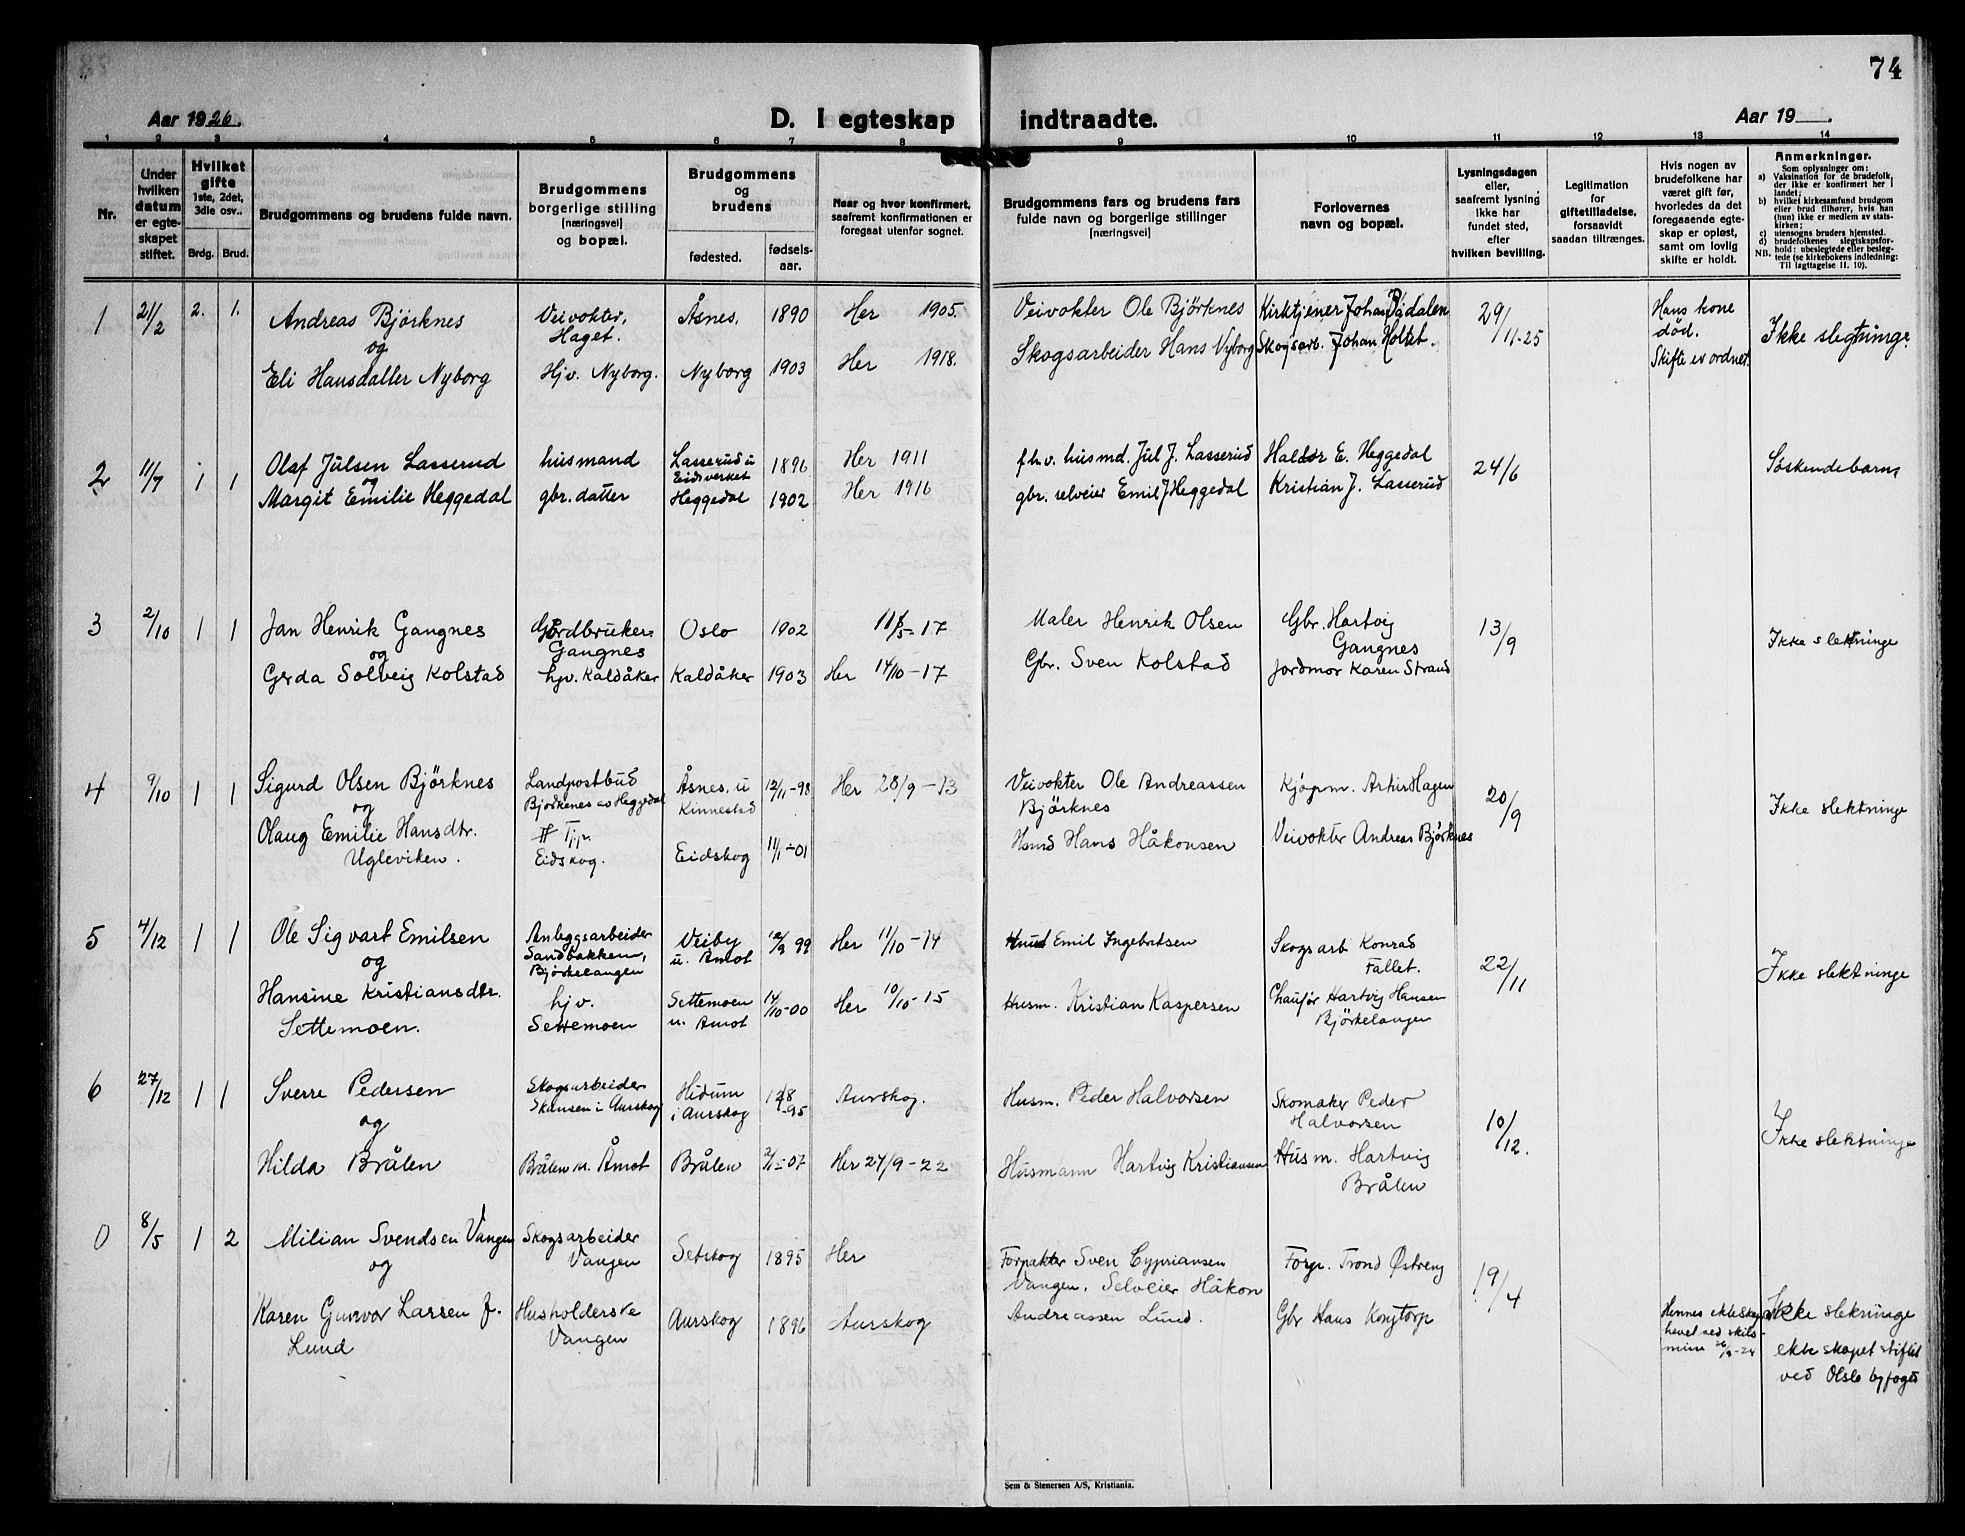 74
Aar 1926.
D. I egteskap indtraadte.
Aar 19
1 2 3 4 5 6 7 8 9 10 11 12 13 14
Nr.
Under hvilken datum er egteskapet stiftet.
Hvilket gifte
1ste, 2det, 3die osv..
Brdg. Brud.
Brudgommens og brudens fulde navn.
Brudgommens borgerlige stilling [næringsvei] og bopæl.
Brudgommens og brudens
fødested.
fødselsaar.
Naar og hvor konfirmert, saafremt konfirmationen er foregaat utenfor sognet.
Brudgommens fars og brudens fars fulde navn og borgerlige stillinger [næringsvei]
Forlovernes navn og bopæl.
Lysningsdagen eller, saafremt lysning ikke har fundet sted, efter hvilken bevilling.
Legitimation for giftetilladelse, forsaavidt saadan tiltrænges.
Hvis nogen av brudefolkene har været gift før, hvorledes da det foregaaende egteskap er opløst, samt om lovlig skifte er holdt.
Anmerkninger.
Som oplysninger om:
a) Vaksination for de brudefolk, der ikke er konfirmert her i landet;
b) hvilket kirkesamfund brudgom eller brud tilhører, hvis han (hun) ikke er medlem av statskirken;
c) utensogns bruders hjemsted.
d) brudefolkenes slegtskapsforhold: ubeslegtede eller beslegtede (se kirkebokens indledning: Til Iagttagelse II. 10).
NB.
1 21/2 2. 1. Andreas Bjørknes
og
Eli Hansdatter Nyborg
Veivokter, Haget.
Hjv. Nyborg.
Åsnes. 1890 Her 1905.
Nyborg 1903 Her 1918.
Veivokter Ole Bjørknes
Skogsarbeider Hans Nyborg
Kirktjener Johan
Skogsarb. Johan Holtet.
29/11-25
Hans kone død.
Skifte er ordnet.
Ikke slegtninge.
2 11/7 1 1 Olaf Julsen Lasserud
og
Margit Emilie Heggedal
husmand
gbr. datter
Lasserud u Eidsverket 1896 Her 1911
Heggedal 1902 Her 1916
fhv. husmd. Jul J. Lasserud
gbr. selveier Emil J Heggedal
Haldor E. Heggedal
Kristian J. Lasserud
24/6
Søskendebarn
3 2/10 1 1 Jan Henrik Gangnes
og
Gerda Solveig Kolstad
Gårdbruker Gangnes
hjv. Kaldåker
Oslo 1902 -17
Kaldåker 1903 Her 14/10-17
Maler Henrik Olsen
Gbr. Sven Kolstad
Gbr. Hartvig Gangnes
Jordmor Karen Strand
13/9
Ikke slektninge
4 9/10 1 1 Sigurd Olsen Bjørknes
og
Olaug Emilie Hansdtr.
Ugleviken.
Landpostbud
Bjørkenes av Heggedal
Tjp. Eidskog.
Åsnes. u Kinnestad 12/11-98 Her 28/9-13
Eidskog 11/1-01
Veivokter Ole Andreassen
Bjørknes
Hans Håkonsen
Kjøpm. Artur Hagen
Veivokter Andreas Bjørknes
20/9
Ikke slektninge
5 4/12 1 1 Ole Sigvart Emilsen
og
Hansine Kristiansdtr.
Settemoen.
Anleggsarbeider
Sandbakken,
Bjørkelangen
hjv.
Settemoen
Veiby u. Åmot 99 Her 11/10-14
Settemoen u. Åmot 14/10-00 Her 10/10-15
Emil Ingebretsen
Husm. Kristian Kaspersen
Skogsarb Konrad Fallet.
Chaufør Hartvig Hansen
Bjørkelangen
22/11
Ikke slektninge
6 27/12 1 1 Sverre Pedersen
og
Hilda Brålen
Skogsarbeider
Skansen i Aurskog
Brålen u. Åmot
Hidum i Aurskog -95 Aurskog.
Brålen 2/11-07 Her 24/9-22
Husm. Peder Halvorsen
Husmann Hartvig Kristiansen
Skomaker Peder Halvorsen
Husm. Hartvig Brålen
10/12.
Ikke slektninge
0 8/5 1 2 Milian Svendsen Vangen
og
Karen Gunvor Larsen f. Lund
Skogsarbeider
Vangen
Husholderske
Vangen
Setskog 1895 Her
Aurskog 1896 Aurskog
Forpakter Sven Cypriansen
Vangen. Selveier Håkon
Andreassen Lund.
Forp. Trond Østreng
Gbr Hans Kongtorp
19/4
Hennes ekteskap hevet ved skilsmisse
Ikke slektninge
ekteskapet stiftet
ved Oslo byfoget
Sem & Stenersen A/S, Kristiania.